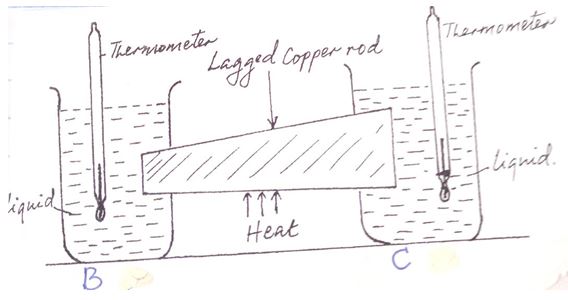 Thermometer
Lagged Copper rod
Thermometer
liquid
liquid.
Heat
B
C